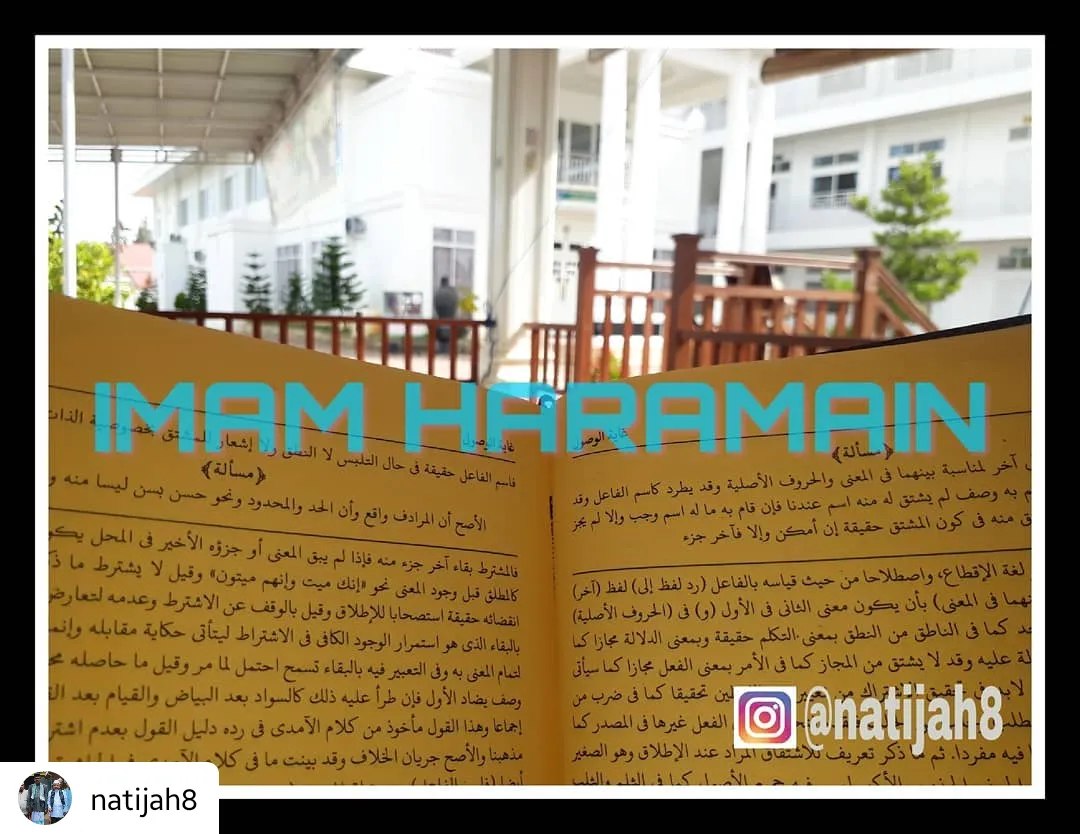 IMAM HARAMAIN
غاية الوصول
﴿مسألة﴾
آخر لمناسبة بينهما فى المعنى والحروف الأصلية وقد يطرد كاسم الفاعل وقد
به وصف لم يشتق له منه اسم عندنا فإن قام به ما له اسم وجب وإلا لم يجز
منه فى كون المشتق حقيقة إن أمكن وإلا فآخر جزء
لغة الإقطاع، واصطلاحا من حيث قياسه بالفاعل (رد لفظ إلى) لفظ (آخر)
فى المعنى) بأن يكون معنى الثانى فى الأول (و) فى (الحروف الأصلية)
كما فى الناطق من النطق بمعنى التكلم حقيقة وبمعنى الدلالة مجازا كما
عليه وقد لا يشتق من المجاز كما فى الأمر بمعنى الفعل مجازا كما سيأتى
تحقيقا كما فى ضرب من
الفعل غيرها فى المصدر كما
فيه مفردا. ثم ما ذكر تعريف للاشتقاق المراد عند الإطلاق وهو الصغير
غاية الوصول
فاسم الفاعل حقيقة فى حال التلبس لا النطق ولا إشعار للمشتق بخصوصية الذات
﴿مسألة﴾
الأصح أن المرادف واقع وأن الحد والمحدود ونحو حسن بسن ليسا منه
فالمشترط بقاء آخر جزء منه فإذا لم يبق المعنى أو جزؤه الأخير فى المحل
كالمطلق قبل وجود المعنى نحو «إنك ميت وإنهم ميتون» وقيل لا يشترط ما
انقضائه حقيقة استصحابا للإطلاق وقيل بالوقف عن الاشترط وعدمه لتعارض
بالبقاء الذى هو استمرار الوجود الكافى فى الاشتراط ليتأتى حكاية مقابله
لتمام المعنى به وفى التعبير فيه بالبقاء تسمح احتمل لما مر وقيل ما حاصله
وصف يضاد الأول فإن طرأ عليه ذلك كالسواد بعد البياض والقيام بعد
إجماعا وهذا القول مأخوذ من كلام الآمدى فى رده دليل القول بعدم
مذهبنا والأصح جريان الخلاف وقد بينت ما فى كلام
@natijah8
natijah8